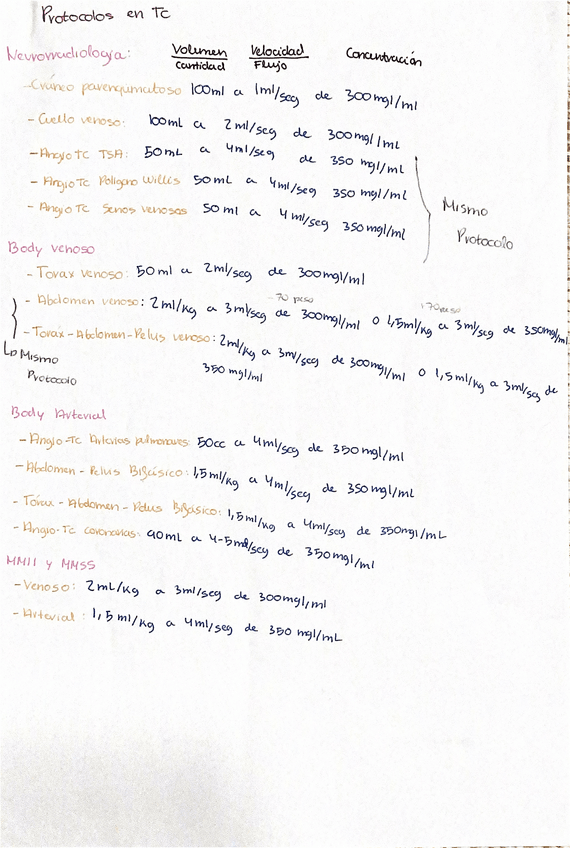 Protocolos en Tc
Neurorradiología: Volumen Velocidad Concentración
Cantidad Flujo
- Cráneo parenquimatoso 100ml a 1ml/seg de 300mgl/ml
- Cuello venoso: 100ml a 2ml/seg de 300mgl/ml
- Angio TC TSA: 50mL a 4ml/seg de 350 mgl/ml
- Angio Tc Polígono Willis 50mL a 4ml/seg 350 mgl/ml
- Angio Tc Senos venosos 50ml a 4ml/seg 350mgl/ml
Mismo
Protocolo
Body venoso
- Torax venoso: 50ml a 2ml/seg de 300mgl/ml
-70 peso +70peso
- Abdomen venoso: 2ml/kg a 3ml/seg de 300mgl/ml o 1,5ml/kg a 3ml/seg de 350mgl/ml
- Torax-Abdomen-Pelvis venoso: 2ml/kg a 3ml/seg de 300mgl/ml o 1,5ml/kg a 3ml/seg de
350 mgl/ml
Mismo
Protocolo
Body Arterial
- Angio-Tc Arterias pulmonares: 50cc a 4ml/seg de 350mgl/ml
- Abdomen-Pelvis Bifásico: 1,5ml/kg a 4ml/seg de 350mgl/ml
- Tórax-Abdomen-Pelvis Bifásico: 1,5ml/kg a 4ml/seg de 350mgl/mL
- Angio-Tc coronarias: 90mL a 4-5ml/seg de 350mgl/ml
MMII y MMSS
- Venoso: 2mL/kg a 3ml/seg de 300mgl/ml
- Arterial: 1,5ml/kg a 4ml/seg de 350 mgl/mL